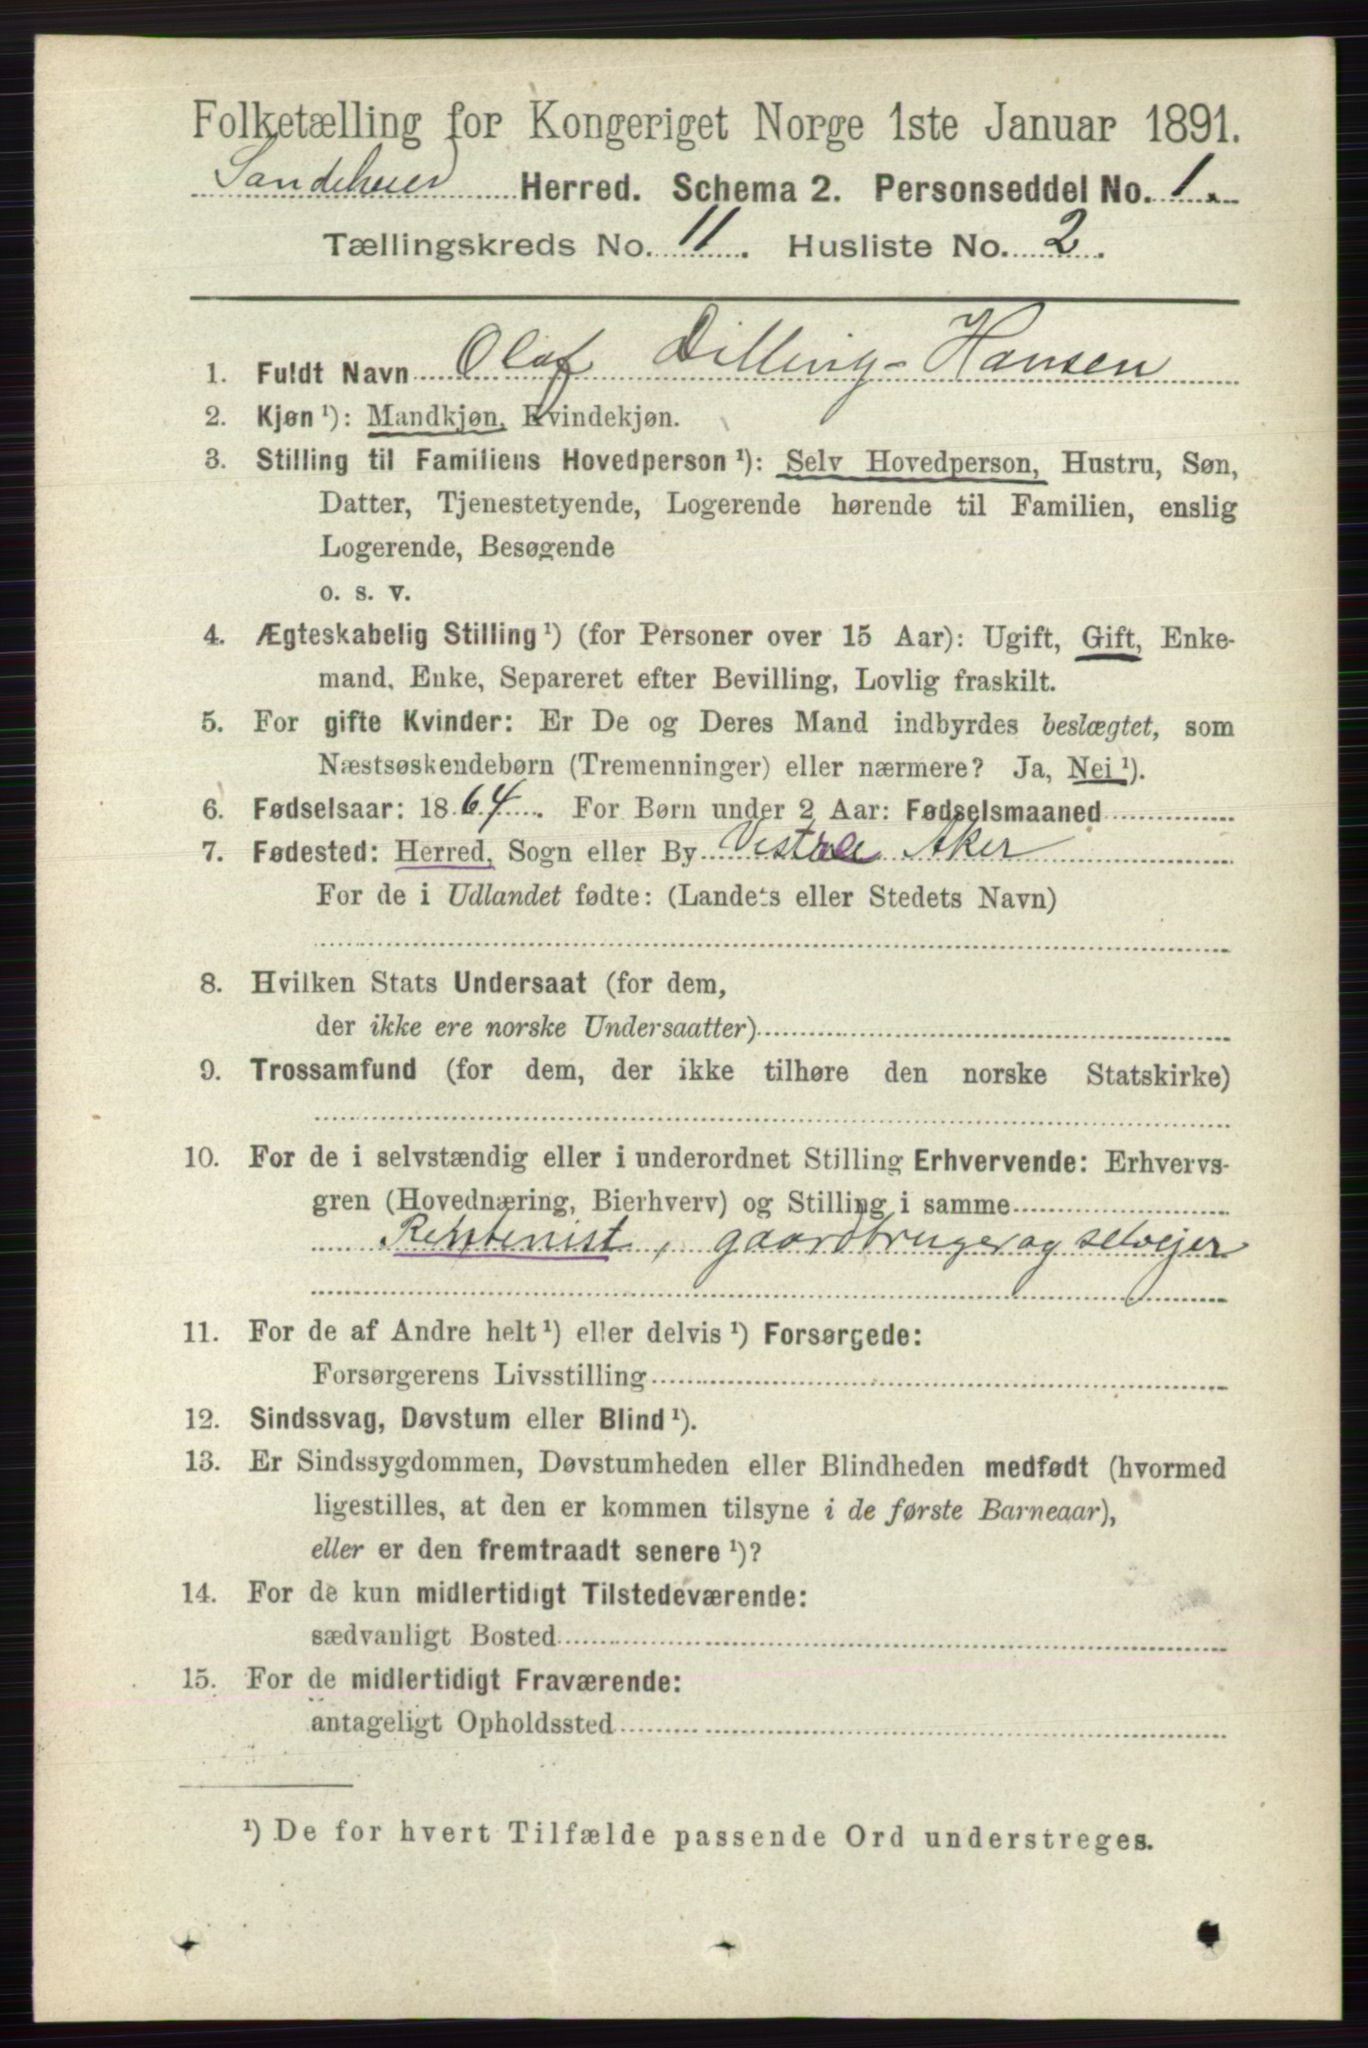 Folketælling for Kongeriget Norge 1ste Januar 1891.
Sandeherred Herred. Schema 2. Personseddel No. 1.
Tællingskreds No. 11. Husliste No. 2.
1. Fuldt Navn Olaf Dilling-Hansen
2. Kjøn ¹): Mandkjøn, Kvindekjøn.
3. Stilling til Familiens Hovedperson ¹): Selv Hovedperson, Hustru, Søn,
Datter, Tjenestetyende, Logerende hørende til Familien, enslig
Logerende, Besøgende
o. s. v.
4. Ægteskabelig Stilling ¹) (for Personer over 15 Aar): Ugift, Gift, Enke-
mand, Enke, Separeret efter Bevilling, Lovlig fraskilt.
5. For gifte Kvinder: Er De og Deres Mand indbyrdes beslægtet, som
Næstsøskendebørn (Tremenninger) eller nærmere? Ja, Nei ¹).
6. Fødselsaar: 1864. For Børn under 2 Aar: Fødselsmaaned
7. Fødested: Herred, Sogn eller By Vestre Aker
For de i Udlandet fødte: (Landets eller Stedets Navn)
8. Hvilken Stats Undersaat (for dem,
der ikke ere norske Undersaatter)
9. Trossamfund (for dem, der ikke tilhøre den norske Statskirke)
10. For de i selvstændig eller i underordnet Stilling Erhvervende: Erhvervs-
gren (Hovednæring, Bierhverv) og Stilling i samme
Rentenist, gaardbruger og selvejer
11. For de af Andre helt ¹) eller delvis ¹) Forsørgede:
Forsørgerens Livsstilling
12. Sindssvag, Døvstum eller Blind ¹).
13. Er Sindssygdommen, Døvstumheden eller Blindheden medfødt (hvormed
ligestilles, at den er kommen tilsyne i de første Barneaar),
eller er den fremtraadt senere ¹)?
14. For de kun midlertidigt Tilstedeværende:
sædvanligt Bosted
15. For de midlertidigt Fraværende:
antageligt Opholdssted
¹) De for hvert Tilfælde passende Ord understreges.